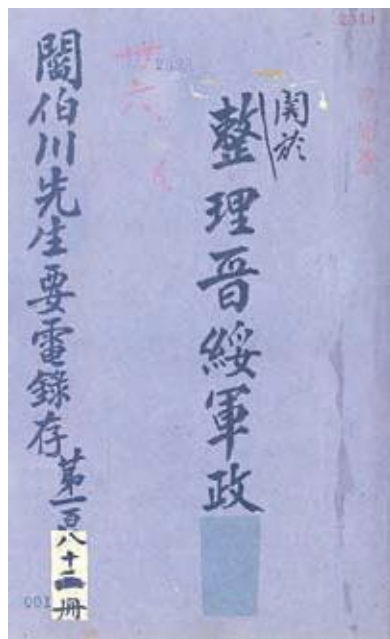 關於
整理晉綏軍政
閻伯川先生要電錄存
第一百八十二冊
001